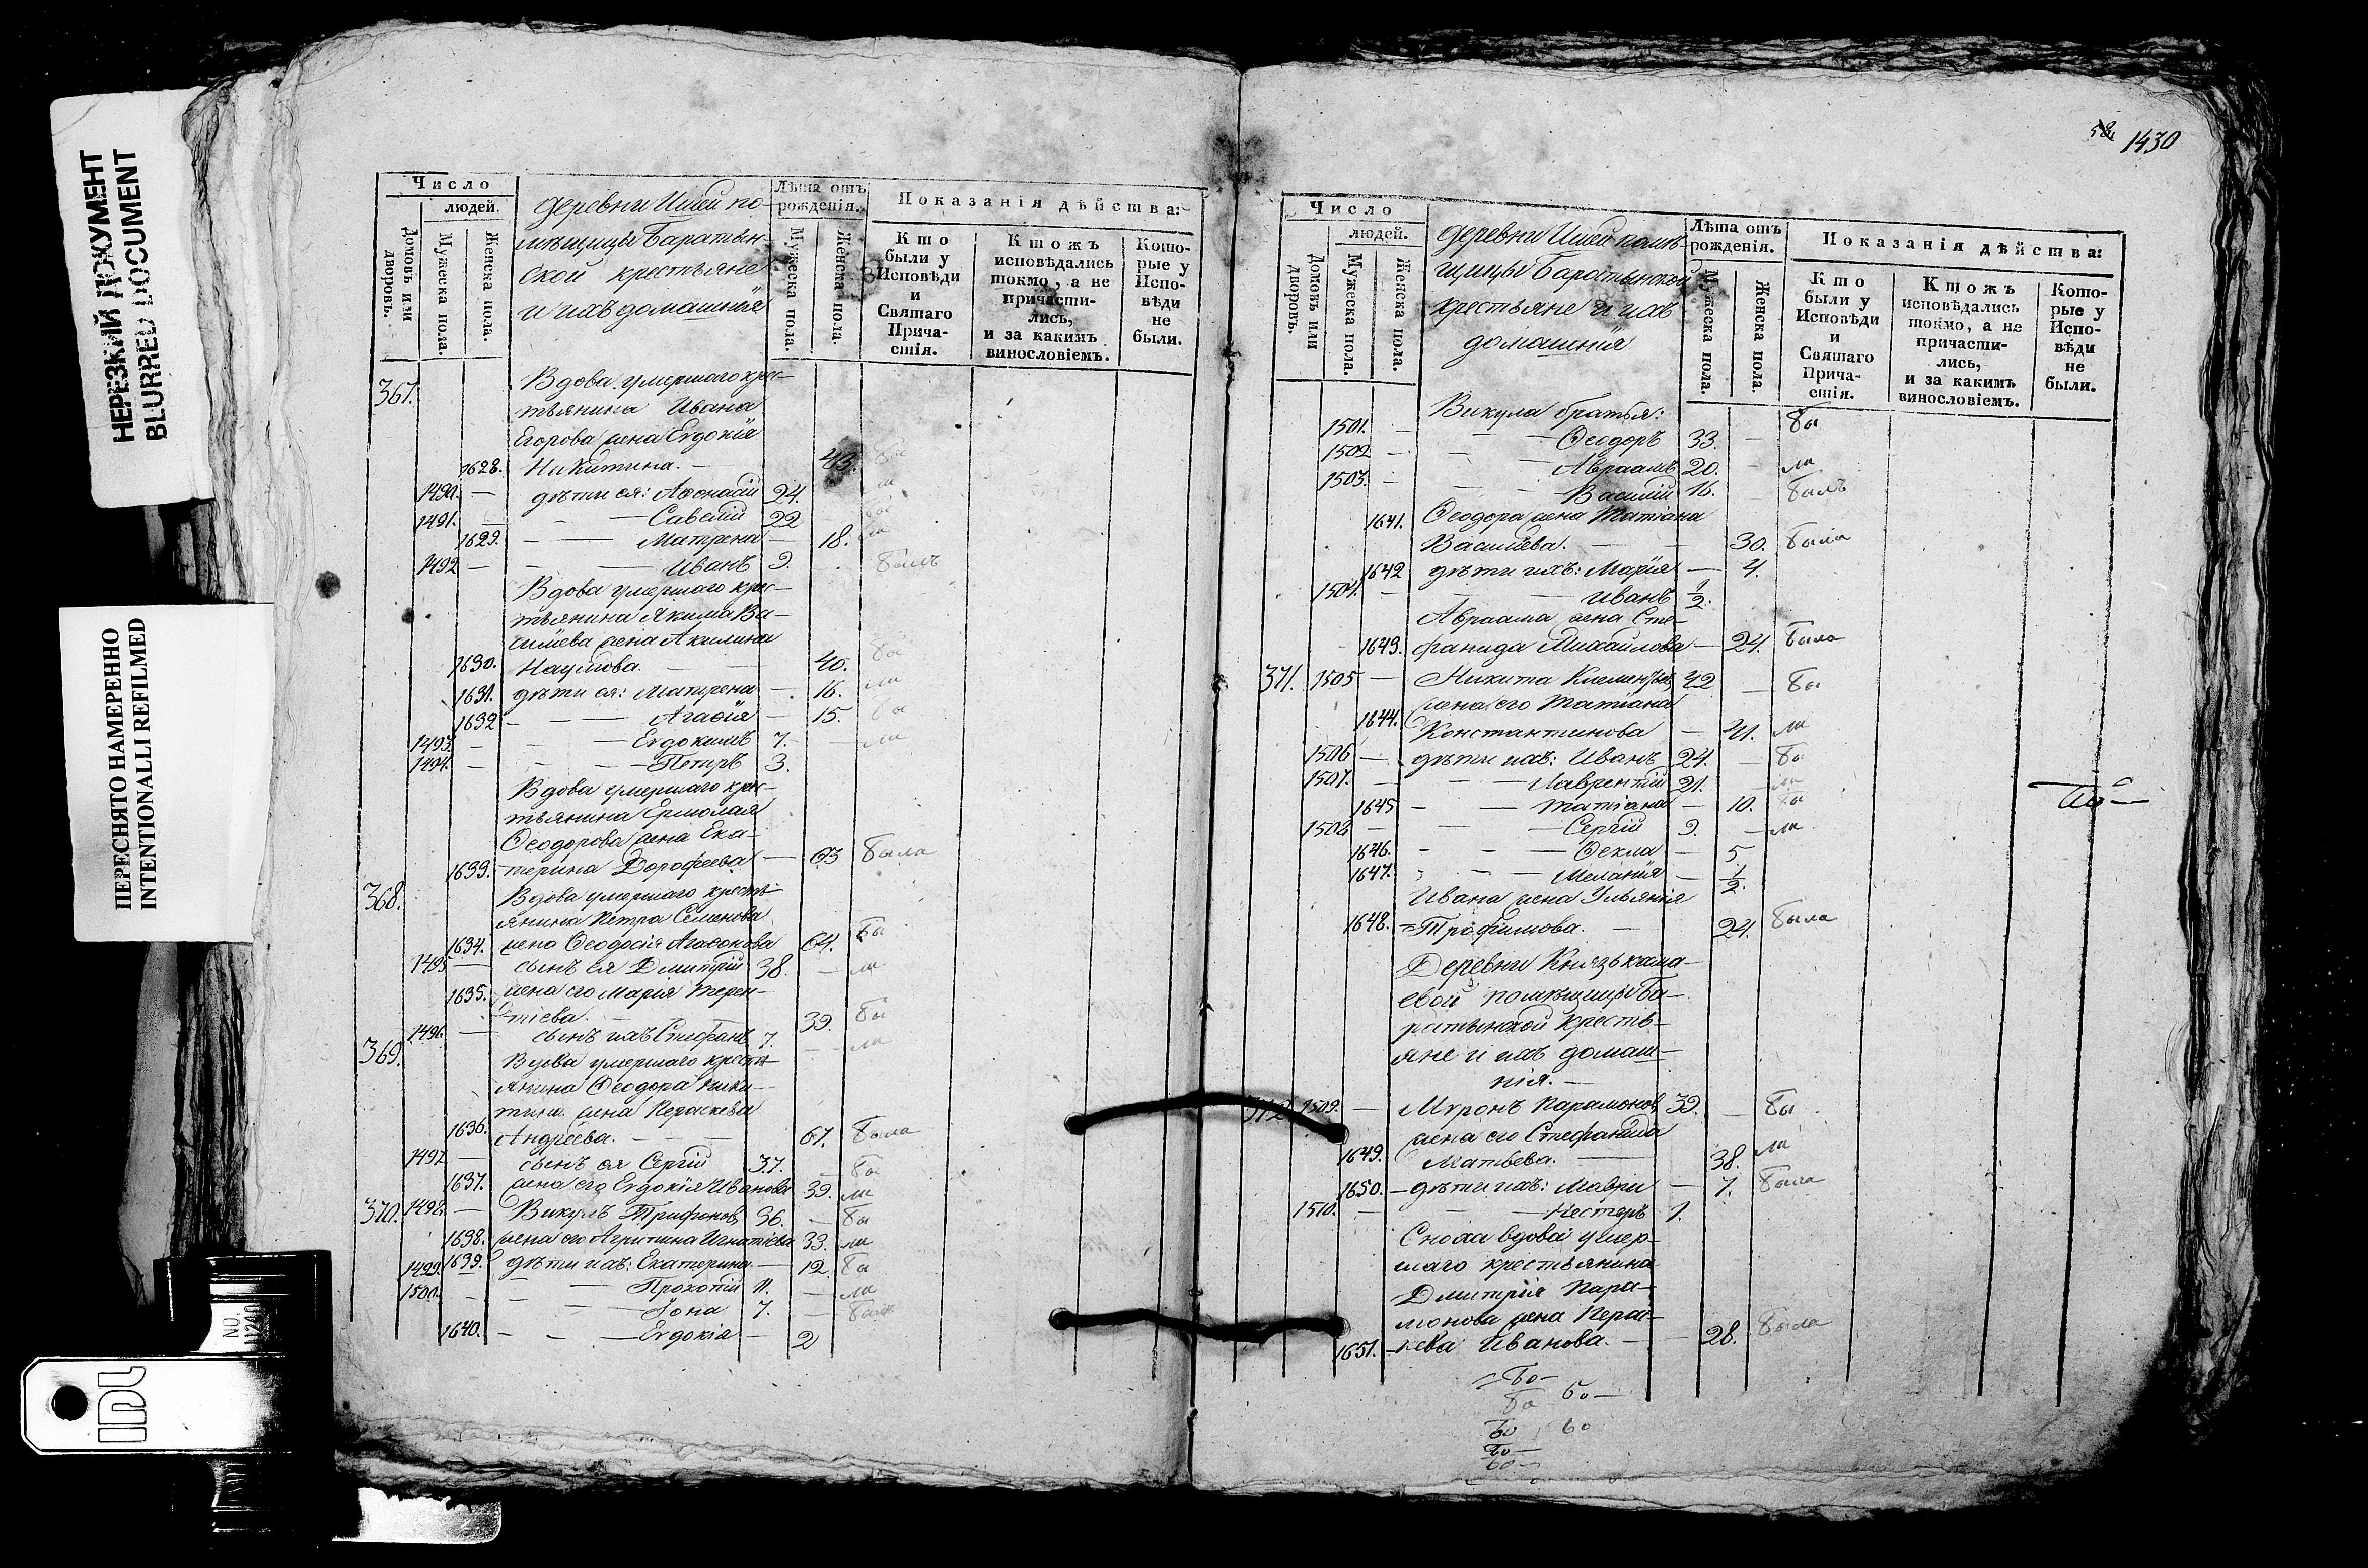 НЕРЕЗКИЙ ДОКУМЕНТ
BLURRED DOCUMENT
ПЕРЕСНЯТО НАМЕРЕННО
INTENTIONALLI REFILMED
Число
людей.
Домовъ или дворовъ.
Мужеска пола.
Женска пола.
деревни Ишей по-
мѣщицы Баратын-
ской крестьяне
и ихъ домашнія
Лѣта отъ рожденія.
Мужеска пола.
Женска пола.
Показанія дѣйства:
Кто были у Исповѣди и Святаго Прича-стія.
Ктожъ исповѣдались токмо, а не причасти-лись, и за какимъ винословіемъ.
Кото-рые у Испо-вѣди не были.
367. Вдова умершаго крес-
тьянина Ивана
Егорова жена Евдокія
1628. Никитина. — 43.
1490. — дѣти ея: Аѳонасій 24.
1491. — Савелій 22
1629. — Матрена — 18.
1492 — Иванъ 9. былъ
Вдова умершаго крес-
тьянина Якима Ва-
силіева жена Акилина
1630. Наумова. — 40. бы
1631. дѣти ея: Матрена — 16. ли
1632 — Агаѳія — 15. бы
1493. — Евдокимъ 7. — ли
1494. — Петръ 3.
Вдова умершаго крес-
тьянина Ермолая
Ѳеодорова жена Ека-
1633. терина Дорофеева — 63 была
368. Вдова умершаго кресть-
янина Петра Семенова
1634. жена Ѳеодосія Агаѳонова 64. бы
1495 — сынъ ея Дмитрій 38. — ли
1635. жена его Марія Терен-
тіева. — 39. бы
1496. — сынъ ихъ Стефанъ 7. — ли
369. Вдова умершаго кресть-
янина Ѳеодора Ники-
тина жена Параскева
1636. Андреева. — 67. была
1497. — сынъ ея Сергій 37. — бы
1637. жена его Евдокія Иванова 39. ли
370. 1498. — Викулъ Трифоновъ 36. — бы
1638. жена его Агрипина Игнатіева 33. ли
1499. 1639. дѣти ихъ: Екатерина — 12. бы
1500. — Прокопій 11. — ли
— Іона 7. — былъ
1640. — Евдокія — 2
1430
Число
людей.
Домовъ или дворовъ.
Мужеска пола.
Женска пола.
деревни Ишей помѣ-
щицы Баратынской
крестьяне и ихъ
домашнія
Лѣта отъ рожденія.
Мужеска пола.
Женска пола.
Показанія дѣйства:
Кто были у Исповѣди и Святаго Прича-стія.
Ктожъ исповѣдались токмо, а не причасти-лись, и за какимъ винословіемъ.
Кото-рые у Испо-вѣди не были.
Викула братья:
1501. — Ѳеодоръ 33. — бы
1502 — Авраамъ 20. — ли
1503. — Василій 16. былъ
1641. Ѳеодора жена Татіана
Василіева. — 30. была
1642 дѣти ихъ: Марія — 4.
1504. — Иванъ 1/2.
Авраама жена Сте-
1643. фанида Михайлова — 24. была
371. 1505 — Никита Клементьевъ 42 — бы
жена его Татіана
1644. Константинова — 41. ли
1506 — дѣти ихъ: Иванъ 24. — бы
1507. — Лаврентій 21. — ли
1645 — Татіана — 10. бы
1508 — Сергій 9. — ли
1646. — Ѳекла — 5
1647. — Меланія — 1/2.
Ивана жена Ульянія
1648. Трофимова. — 24. была
Деревни Князь кама-
евой помѣщицы Ба-
ратынской кресть-
яне и ихъ домаш-
нія. —
372 1509. — Миронъ Парамоновъ 39. — бы
жена его Стефанида
1649. Матвеева. — 38. ли
1650. — дѣти ихъ: Мавра — 7. была
1510. — Несторъ 1.
Сноха вдова умер-
шаго крестьянина
Дмитрія Пара-
монова жена Парас-
1651. кева Иванова. — 28. была